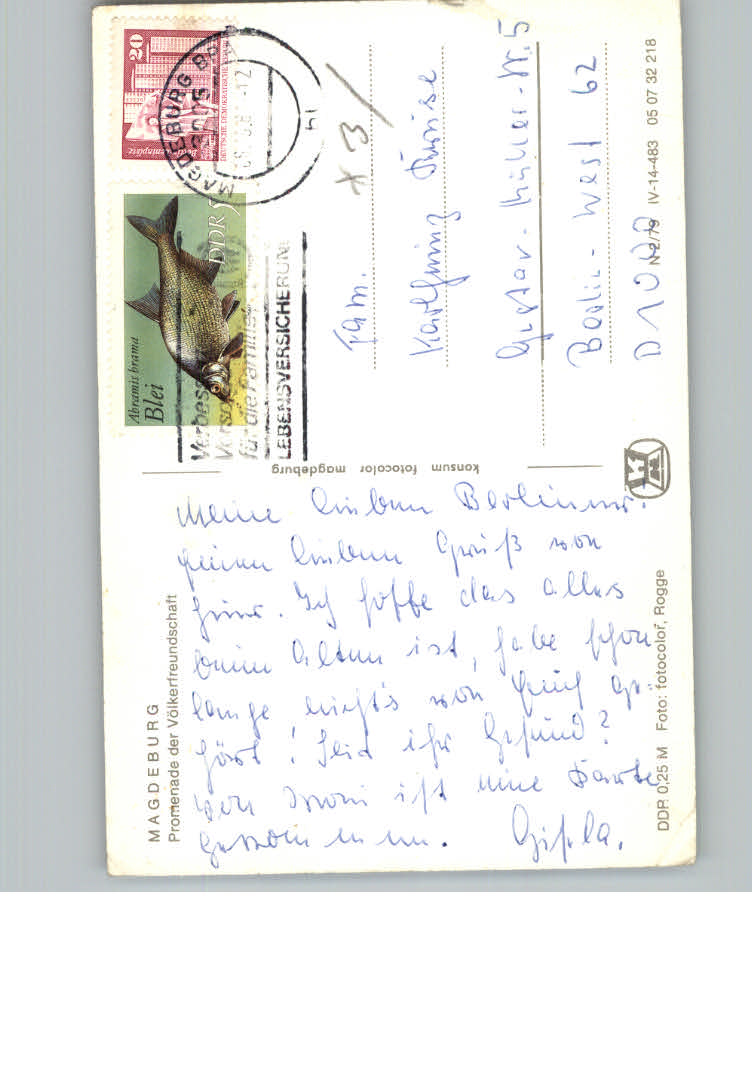 MAGDEBURG
Promenade der Völkerfreundschaft
Meine lieben Berliner.
einen lieben Gruß von
hier. Ich hoffe das alles
beim Alten ist, habe schon
lange nicht's von Euch ge-
hört! Seid ihr Gesund?
von ist eine Karte
Gisela.
DDR 0,25 M Foto: fotocolor, Rogge
konsum fotocolor magdeburg
20
DEUTSCHE DEMOKRATISCHE
MAGDEBURG
DDR 5
Abramis brama
Blei
für die Familie
LEBENSVERSICHERUN
x 3/
Fam.
Karlheinz
Gustav-Müller-Str. 5
Berlin-West 62
D 1000
N 2/79 IV-14-483 05 07 32 218